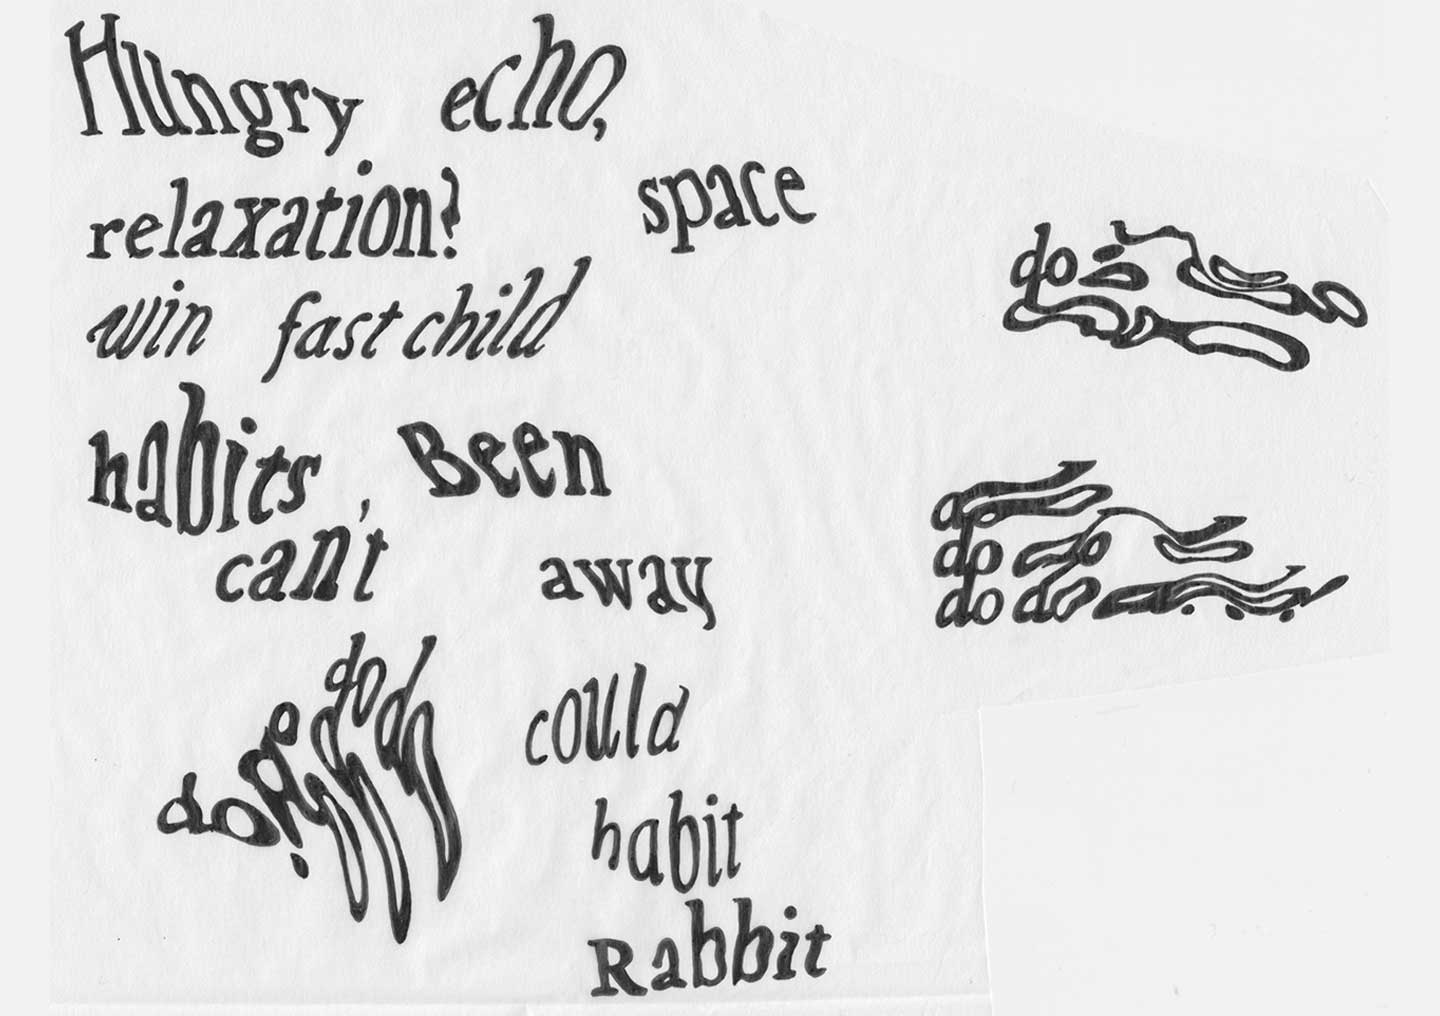 Hungry echo,
relaxation? space
win fast child
habits, Been
can't away
could
habit
Rabbit
do
do
do do
do do
do
do do